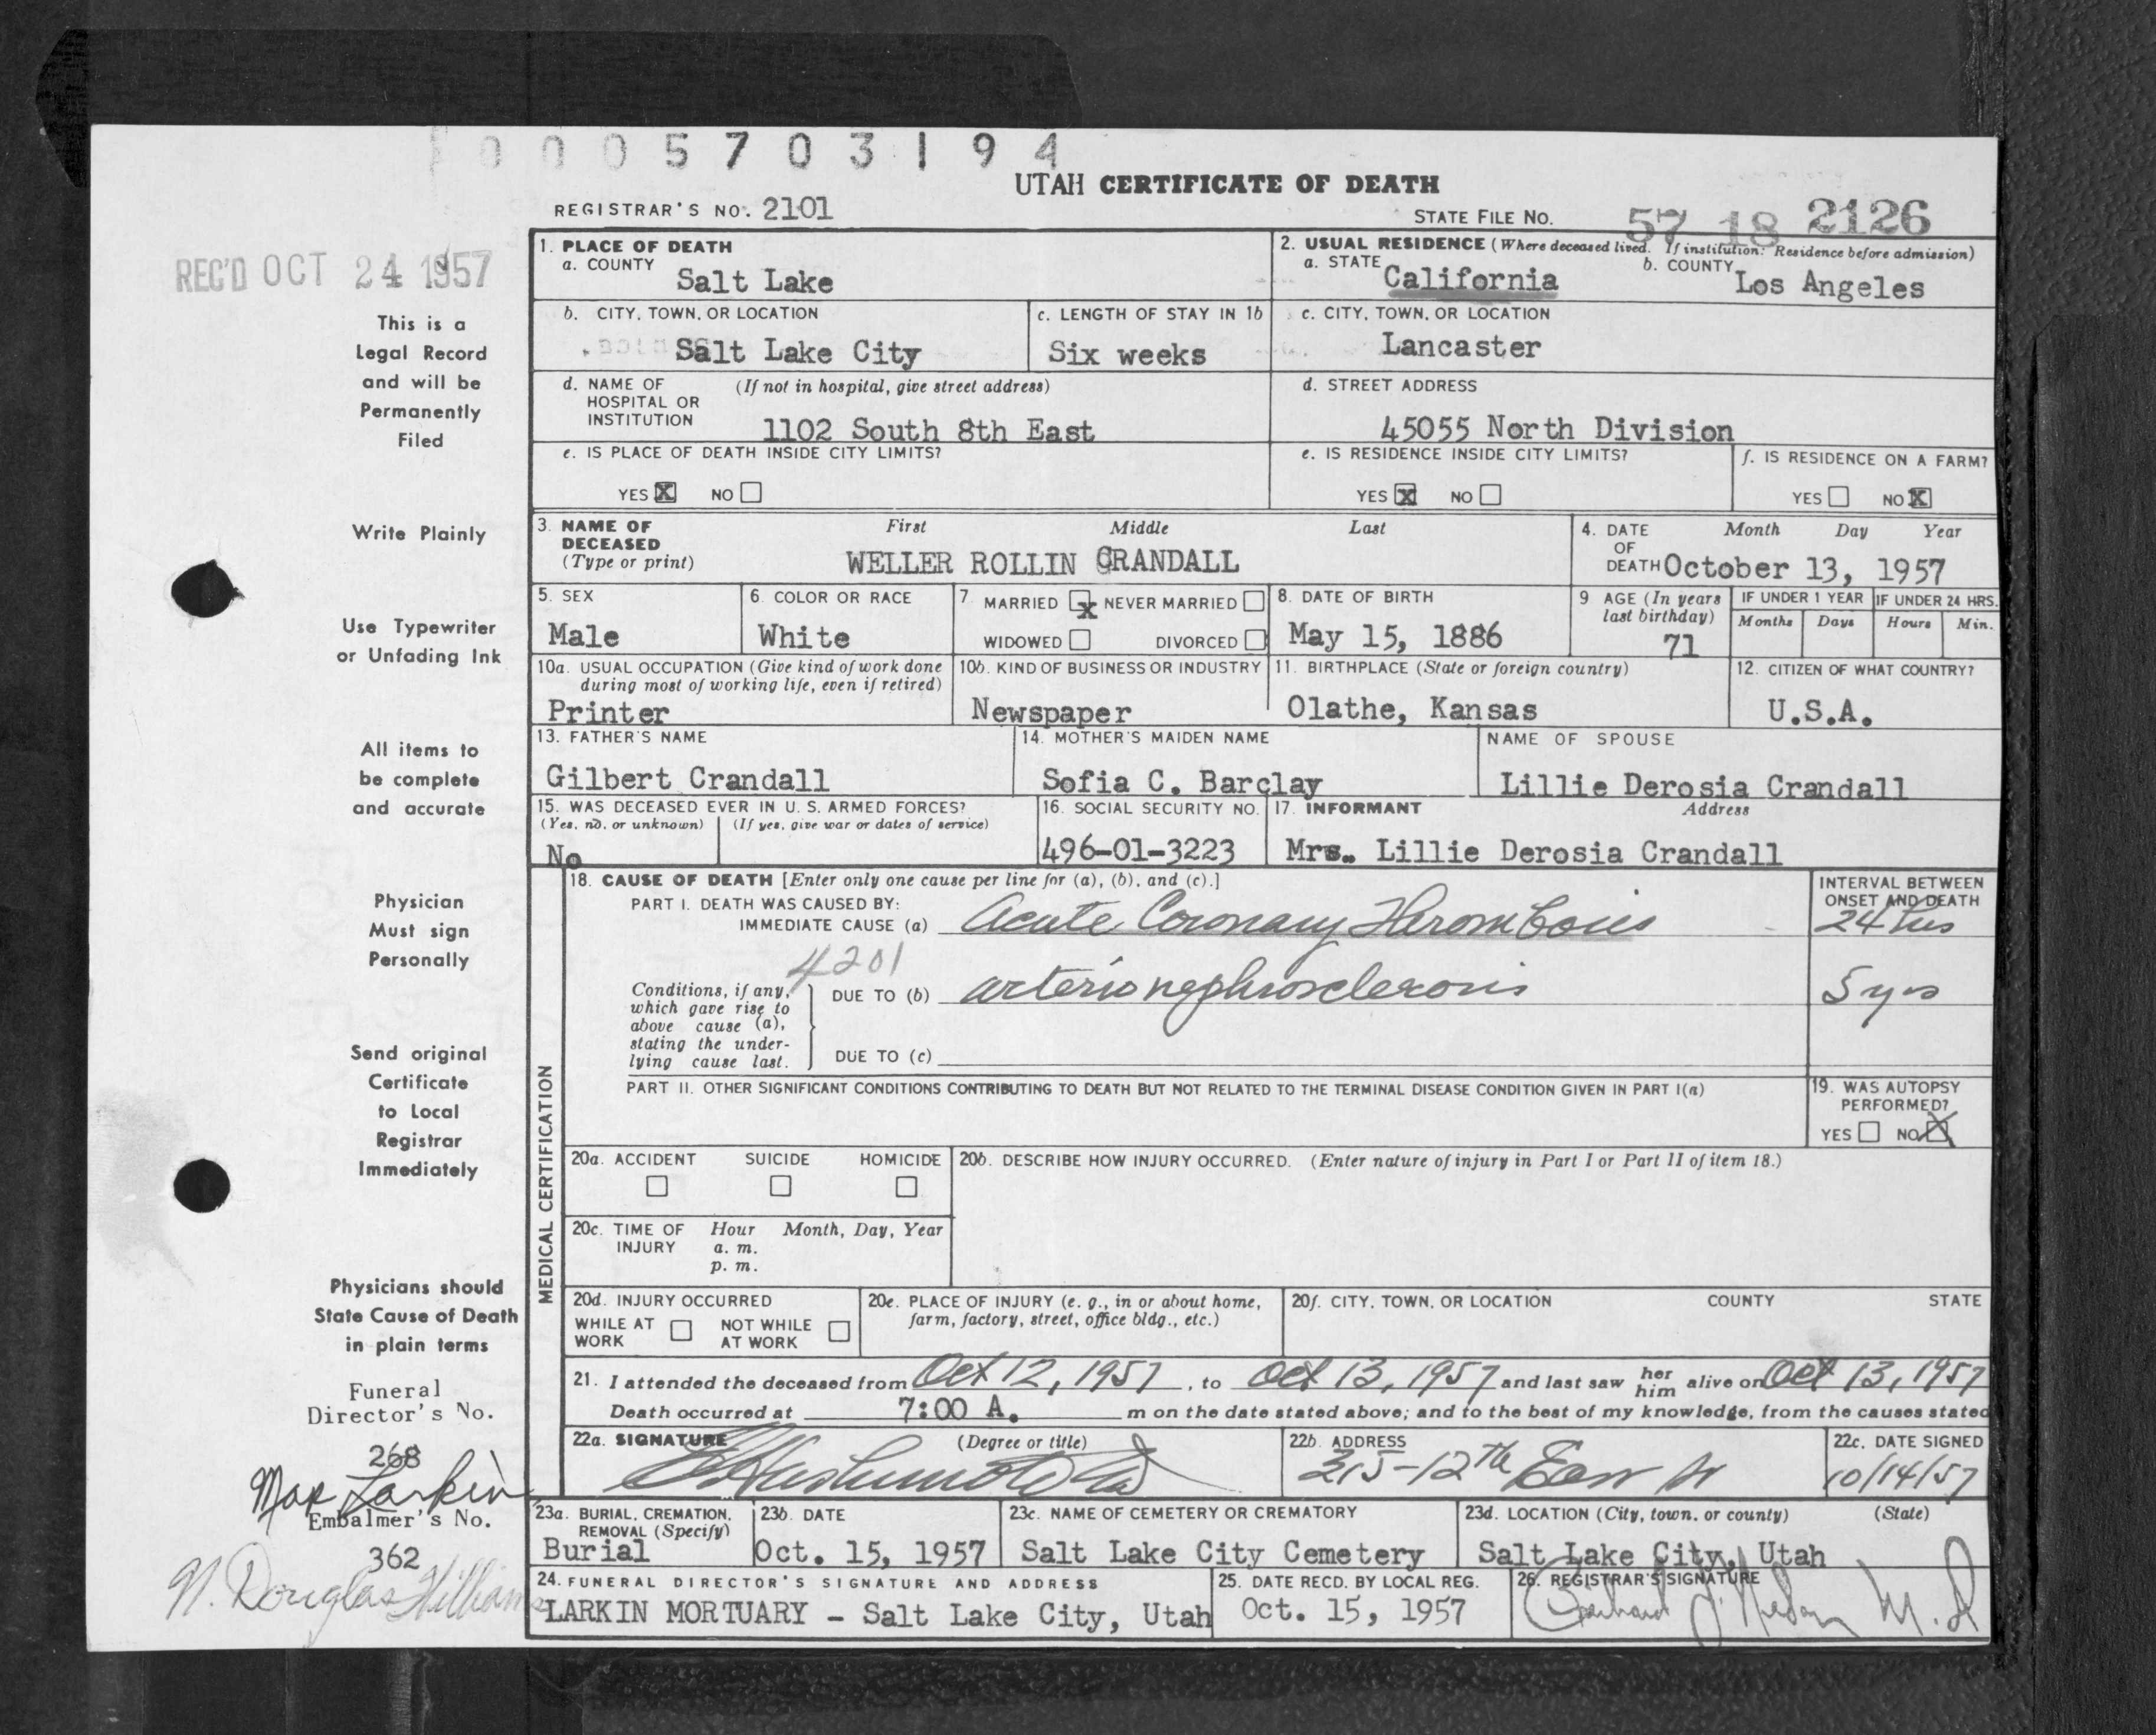 0005703194
UTAH CERTIFICATE OF DEATH
REGISTRAR'S NO. 2101
STATE FILE NO. 57 18 2126
REC'D OCT 24 1957
This is a
Legal Record
and will be
Permanently
Filed
Write Plainly
Use Typewriter
or Unfading Ink
All items to
be complete
and accurate
Physician
Must sign
Personally
Send original
Certificate
to Local
Registrar
Immediately
Physicians should
State Cause of Death
in plain terms
Funeral
Director's No.
268
Max Larkin
Embalmer's No.
362
N. Douglas Williams
1. PLACE OF DEATH
a. COUNTY Salt Lake
2. USUAL RESIDENCE (Where deceased lived. If institution: Residence before admission)
a. STATE California b. COUNTY Los Angeles
b. CITY, TOWN, OR LOCATION
Salt Lake City
c. LENGTH OF STAY IN 1b
Six weeks
c. CITY, TOWN, OR LOCATION
Lancaster
d. NAME OF HOSPITAL OR INSTITUTION (If not in hospital, give street address)
1102 South 8th East
d. STREET ADDRESS
45055 North Division
e. IS PLACE OF DEATH INSIDE CITY LIMITS?
YES X NO
e. IS RESIDENCE INSIDE CITY LIMITS?
YES X NO
f. IS RESIDENCE ON A FARM?
YES NO X
3. NAME OF DECEASED (Type or print) First Middle Last
WELLER ROLLIN CRANDALL
4. DATE OF DEATH Month Day Year
October 13, 1957
5. SEX
Male
6. COLOR OR RACE
White
7. MARRIED X NEVER MARRIED
WIDOWED DIVORCED
8. DATE OF BIRTH
May 15, 1886
9 AGE (In years last birthday)
71
IF UNDER 1 YEAR
Months Days
IF UNDER 24 HRS.
Hours Min.
10a. USUAL OCCUPATION (Give kind of work done during most of working life, even if retired)
Printer
10b. KIND OF BUSINESS OR INDUSTRY
Newspaper
11. BIRTHPLACE (State or foreign country)
Olathe, Kansas
12. CITIZEN OF WHAT COUNTRY?
U.S.A.
13. FATHER'S NAME
Gilbert Crandall
14. MOTHER'S MAIDEN NAME
Sofia C. Barclay
NAME OF SPOUSE
Lillie Derosia Crandall
15. WAS DECEASED EVER IN U. S. ARMED FORCES?
(Yes, no, or unknown) (If yes, give war or dates of service)
No
16. SOCIAL SECURITY NO.
496-01-3223
17. INFORMANT Address
Mrs. Lillie Derosia Crandall
MEDICAL CERTIFICATION
18. CAUSE OF DEATH [Enter only one cause per line for (a), (b), and (c).]
PART I. DEATH WAS CAUSED BY:
IMMEDIATE CAUSE (a) Acute Coronary Thrombosis
INTERVAL BETWEEN ONSET AND DEATH
24 hrs
4201
Conditions, if any, which gave rise to above cause (a), stating the underlying cause last.
DUE TO (b) arterionephrosclerosis
5 yrs
DUE TO (c)
PART II. OTHER SIGNIFICANT CONDITIONS CONTRIBUTING TO DEATH BUT NOT RELATED TO THE TERMINAL DISEASE CONDITION GIVEN IN PART I(a)
19. WAS AUTOPSY PERFORMED?
YES NO X
20a. ACCIDENT SUICIDE HOMICIDE
20b. DESCRIBE HOW INJURY OCCURRED. (Enter nature of injury in Part I or Part II of item 18.)
20c. TIME OF INJURY Hour Month, Day, Year
a. m.
p. m.
20d. INJURY OCCURRED
WHILE AT WORK NOT WHILE AT WORK
20e. PLACE OF INJURY (e. g., in or about home, farm, factory, street, office bldg., etc.)
20f. CITY, TOWN, OR LOCATION COUNTY STATE
21. I attended the deceased from Oct 12, 1957, to Oct 13, 1957 and last saw her him alive on Oct 13, 1957
Death occurred at 7:00 A. m on the date stated above; and to the best of my knowledge, from the causes stated
22a. SIGNATURE (Degree or title)
22b. ADDRESS
315-12th East
22c. DATE SIGNED
10/14/57
23a. BURIAL, CREMATION, REMOVAL (Specify)
Burial
23b. DATE
Oct. 15, 1957
23c. NAME OF CEMETERY OR CREMATORY
Salt Lake City Cemetery
23d. LOCATION (City, town, or county) (State)
Salt Lake City, Utah
24. FUNERAL DIRECTOR'S SIGNATURE AND ADDRESS
LARKIN MORTUARY - Salt Lake City, Utah
25. DATE RECD. BY LOCAL REG.
Oct. 15, 1957
26. REGISTRAR'S SIGNATURE
M.D.